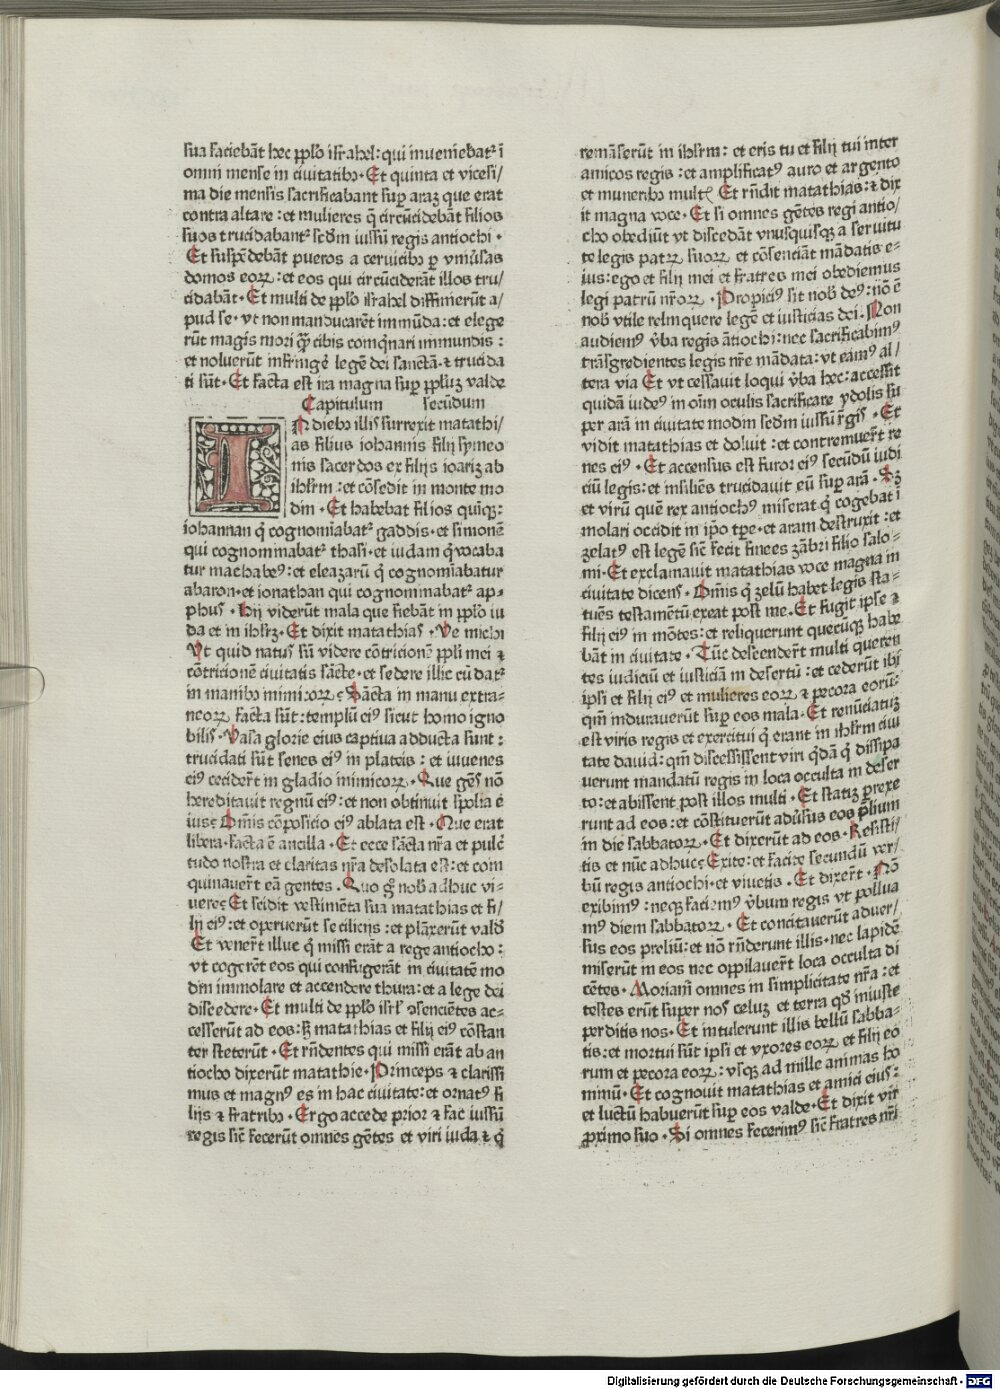 sua faciebāt hec pplo israhel: qui inueniebatꝛ ī
omni mense in ciuitatibꝰ · Et quinta et vicesi/
ma die mensis sacrificabant supꝛ araꝫ que erat
contra altare : et mulieres q̄ circūcidebāt filios
suos trucidabantꝛ scd̄m iussū regis antiochi ·
Et suspēdebāt pueros a ceruicibꝰ ꝑ vniūsas
domos eoꝝ : et eos qui circūciderāt illos tru/
cidabāt · Et multi de pplo israhel diffinierūt a/
pud se · vt non manducarēt immūda : et elege
rūt magis mori q̄ꝫ cibis comq̄nari immundis :
et noluerūt infringe᷑ legē dei sanctā · ⁊ trucida
ti sūt · Et facta est ira magna supꝛ ppluꝫ valde
Capitulum secūdum
IN diebꝰ illis surrexit matathi/
as filius iohannis filij symeo
nis sacerdos ex filijs ioariꝫ ab
ihrlm : et cōsedit in monte mo
din · Et habebat filios quīqꝫ :
iohannan q̄ cognomīabatꝛ gaddis · et simonē
qui cognominabatꝛ thasi · et iudam q̄ vocaba
tur machabeꝰ : et eleazarū q̄ cognomīabatur
abaron · et ionathan qui cognominabatꝛ ap=
phus · Hij viderūt mala que fiebāt in pplo iu
da et in ihrlꝫ · Et dixit matathias · Ve michi
Vt quid natus sū videre cōtricionē ppli mei ⁊
cōtricionē ciuitatis sācte · et sedere illic cū datꝛ
in manibꝰ inimicoꝝ ? Sācta in manu extra=
neoꝝ facta sūt : templū eiꝰ sicut homo igno
bilis · Vasa glorie eius captiua adducta sunt :
trucidati sūt senes eiꝰ in plateis : et iuuenes
eiꝰ cecider̄t in gladio inimicoꝝ · Que gēs nō
hereditauit regnū eiꝰ : et non obtinuit spolia e
ius ? Om̄is cōposicio eiꝰ ablata est · Que erat
libera · facta ē ancilla · Et ecce sācta nr̄a et pulc̄
tudo nostra et claritas nr̄a desolata est : et coin
quinauer̄t eā gentes · Quo g̊ nob adhuc vi=
uere ? Et scidit vestimēta sua matathias et fi/
lij eiꝰ : et operuerūt se cilicijs : et plāxerūt vald̄
Et vener̄t illuc q̄ missi erāt a rege antiocho :
vt cogerēt eos qui confugerāt in ciuitatē mo
din immolare et accendere thura : et a lege dei
discedere · Et multi de pplo isrl̄ ꝯsenciētes ac=
cesserūt ad eos : sꝫ matathias et filij eiꝰ cōstan
ter steterūt · Et rn̄dentes qui missi erāt ab an
tiocho dixerūt matathie · Princeps ⁊ clarissi
mus et magnꝰ es in hac ciuitate : et ornatꝰ fi
lijs ⁊ fratribꝰ · Ergo accede prior ⁊ fac iussū
regis sic̄ fecerūt omnes gētes et viri iuda ⁊ q̄
remāserūt in ihrlm : et eris tu et filij tui inter
amicos regis : et amplificatꝰ auro et argento
et muneribꝰ multꝭ Et rn̄dit matathias : ⁊ dix
it magna voce · Et si omnes gētes regi antio/
cho obediūt vt discedāt vnusquisqꝫ a seruitu
te legis patꝝ suoꝝ et cōsenciāt mādatis e=
ius : ego et filij mei et fratres mei obediemus
legi patrū nr̄oꝝ · Propiciꝰ sit nob deꝰ : nō ē
nob vtile relinquere legē et iusticias dei · Non
audiemꝰ v̄ba regis ātiochi : nec sacrificabimꝰ
trāsgredientes legis nr̄e mādata : vt eamꝰ al/
tera via Et vt cessauit loqui v̄ba hec : accessit
quidā iudeꝰ in oīm oculis sacrificare ydolis su
per arā in ciuitate modin scd̄m iussū rꝫgis · Et
vidit matathias et doluit : et contremuer̄t re
nes eiꝰ · Et accensus est furor eiꝰ secūdū iudi
ciū legis : et insiliēs trucidauit eū supꝛ arā · Sꝫ
et virū quē rex antiochꝰ miserat q̄ cogebat ī
molari occidit in ip̄o tꝑe · et aram destruxit : et
zelatꝰ est legē sic̄ fecit finees zābri filio salo=
mi · Et exclamauit matathias voce magna in
ciuitate dicens · Om̄is q̄ zelū habet legis sta=
tuēs testamētū exeat post me · Et fugit ipse ⁊
filij eiꝰ in mōtes : et reliquerunt quecūqꝫ habe
bāt in ciuitate · Tūc descender̄t multi queren
tes iudiciū et iusticiā in desertū : et cederūt ibi
ipsi et filij eiꝰ et mulieres eoꝝ ⁊ pecora eorū :
qm̄ indurauerūt supꝛ eos mala · Et renūciatuꝫ
est viris regis et exercitui q̄ erant in ihrlm ciui
tate dauid : qm̄ discessissent viri q̄dā q̄ dissipa
uerunt mandatū regis in loca occulta in deser
to : et abissent post illos multi · Et statiꝫ ꝑrexe
runt ad eos : et cōstituerūt adūsus eos p̄lium
in die sabbatoꝝ · Et dixerūt ad eos · Resisti/
tis et nūc adhuc ? Exite : et facite secundū ver/
bū regis antiochi · et viuetis · Et dixer̄t · Nō
exibimꝰ : neqꝫ faciemꝰ v̄bum regis vt pollua
mꝰ diem sabbatoꝝ · Et concitauerūt aduer/
sus eos preliū : et nō rn̄derunt illis · nec lapidē
miserūt in eos nec oppilauer̄t loca occulta di
cētes · Moriam̄ omnes in simplicitate nr̄a : et
testes erūt super nos celuꝫ et terra qd̄ iniuste
perditis nos · Et intulerunt illis bellū sabba=
tis : et mortui sūt ipsi et vxores eoꝝ et filij eo
rum et pecora eoꝝ : vsqꝫ ad mille animas ho
minū · Et cognouit matathias et amici eius :
et luctū habuerūt supꝛ eos valde · Et dixit vir
proximo suo · Si omnes fecerimꝰ sic̄ fratres nr̄i
Digitalisierung gefördert durch die Deutsche Forschungsgemeinschaft - DFG